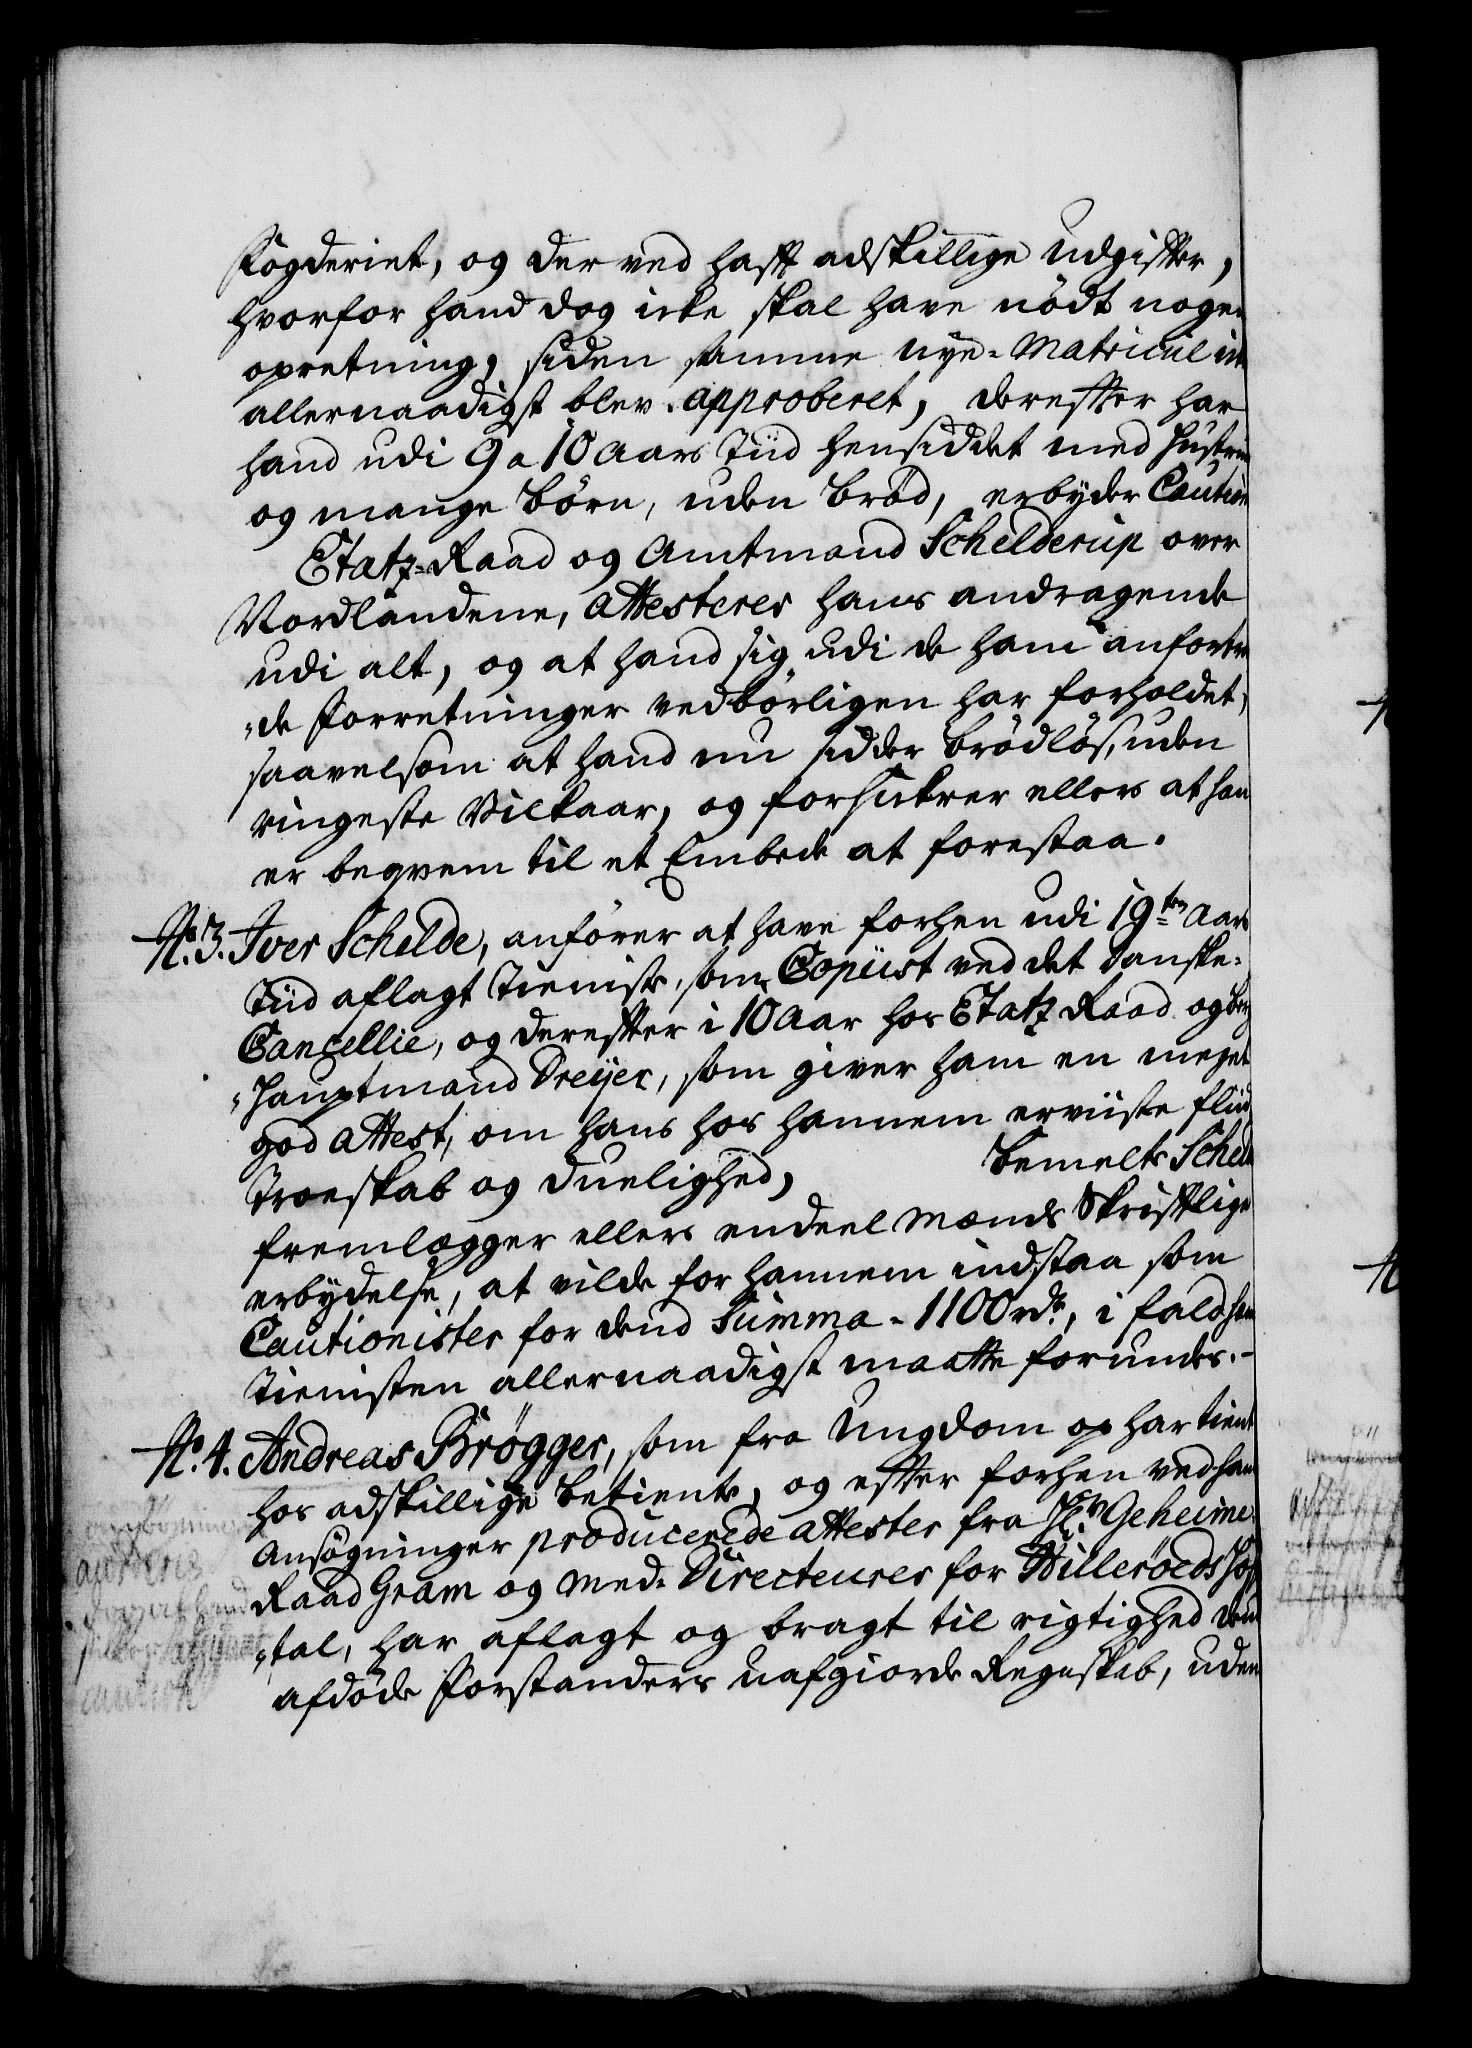 Fogderiet, og der ved hafft adskillige Udgiffter,
hvorfor hand dog icke skal have nødt nogen
opretning, siden samme nye-Matricul
allernaadigst blev approberet, dereffter har
hand udi 9 a 10 Aars Tiid hensiddet med Hustrue
og mange Børn, uden Brød, erbyder Caution
Etatz-Raad og Amtmand Schelderup over
Nordlandene, Attesterer hans andragende
udi alt, og at hand sig udi de ham anfortro
"de Forretninger vedbørligen har forholdet,
saavelsom at hand nu sidder brødløs, uden
ringeste Vilkaar, og forsikrer ellers at han
er beqvem til et Embede at forestaa.
No. 3. Iver Schelde, anfører at have forhen udi 19ten Aars
Tiid aflagt Tieniste, som Copiist ved det Danske-
Cancellie, og dereffter i 10 Aar hos Etatz Raad og Berg
"Hauptmand Dreyer, som giver ham en meget
god Attest, om hans hos hannem erviiste fliid
Troeskab og Duelighed, Bemelte Scheld
fremlægger ellers endeel Mænds Skrifftlige
erbydelse, at vilde for hannem indstaa som
Cautionister for dend Summa-1100 rdr, i fald ham
Tienisten allernaadigst maatte forundes.-
No. 4. Andreas Brøgger, som fra Ungdom op har tient
hos adskillige Betiente, og effter forhen ved hans
Ansøgninger producerede Attester fra Geheime-
Raad Gram og Med-Directeurer for Hilleröeds Hos
"tal, har aflagt og bragt til rigtighed den
afdøde Forstanders uafgiorde Regnskab, uden